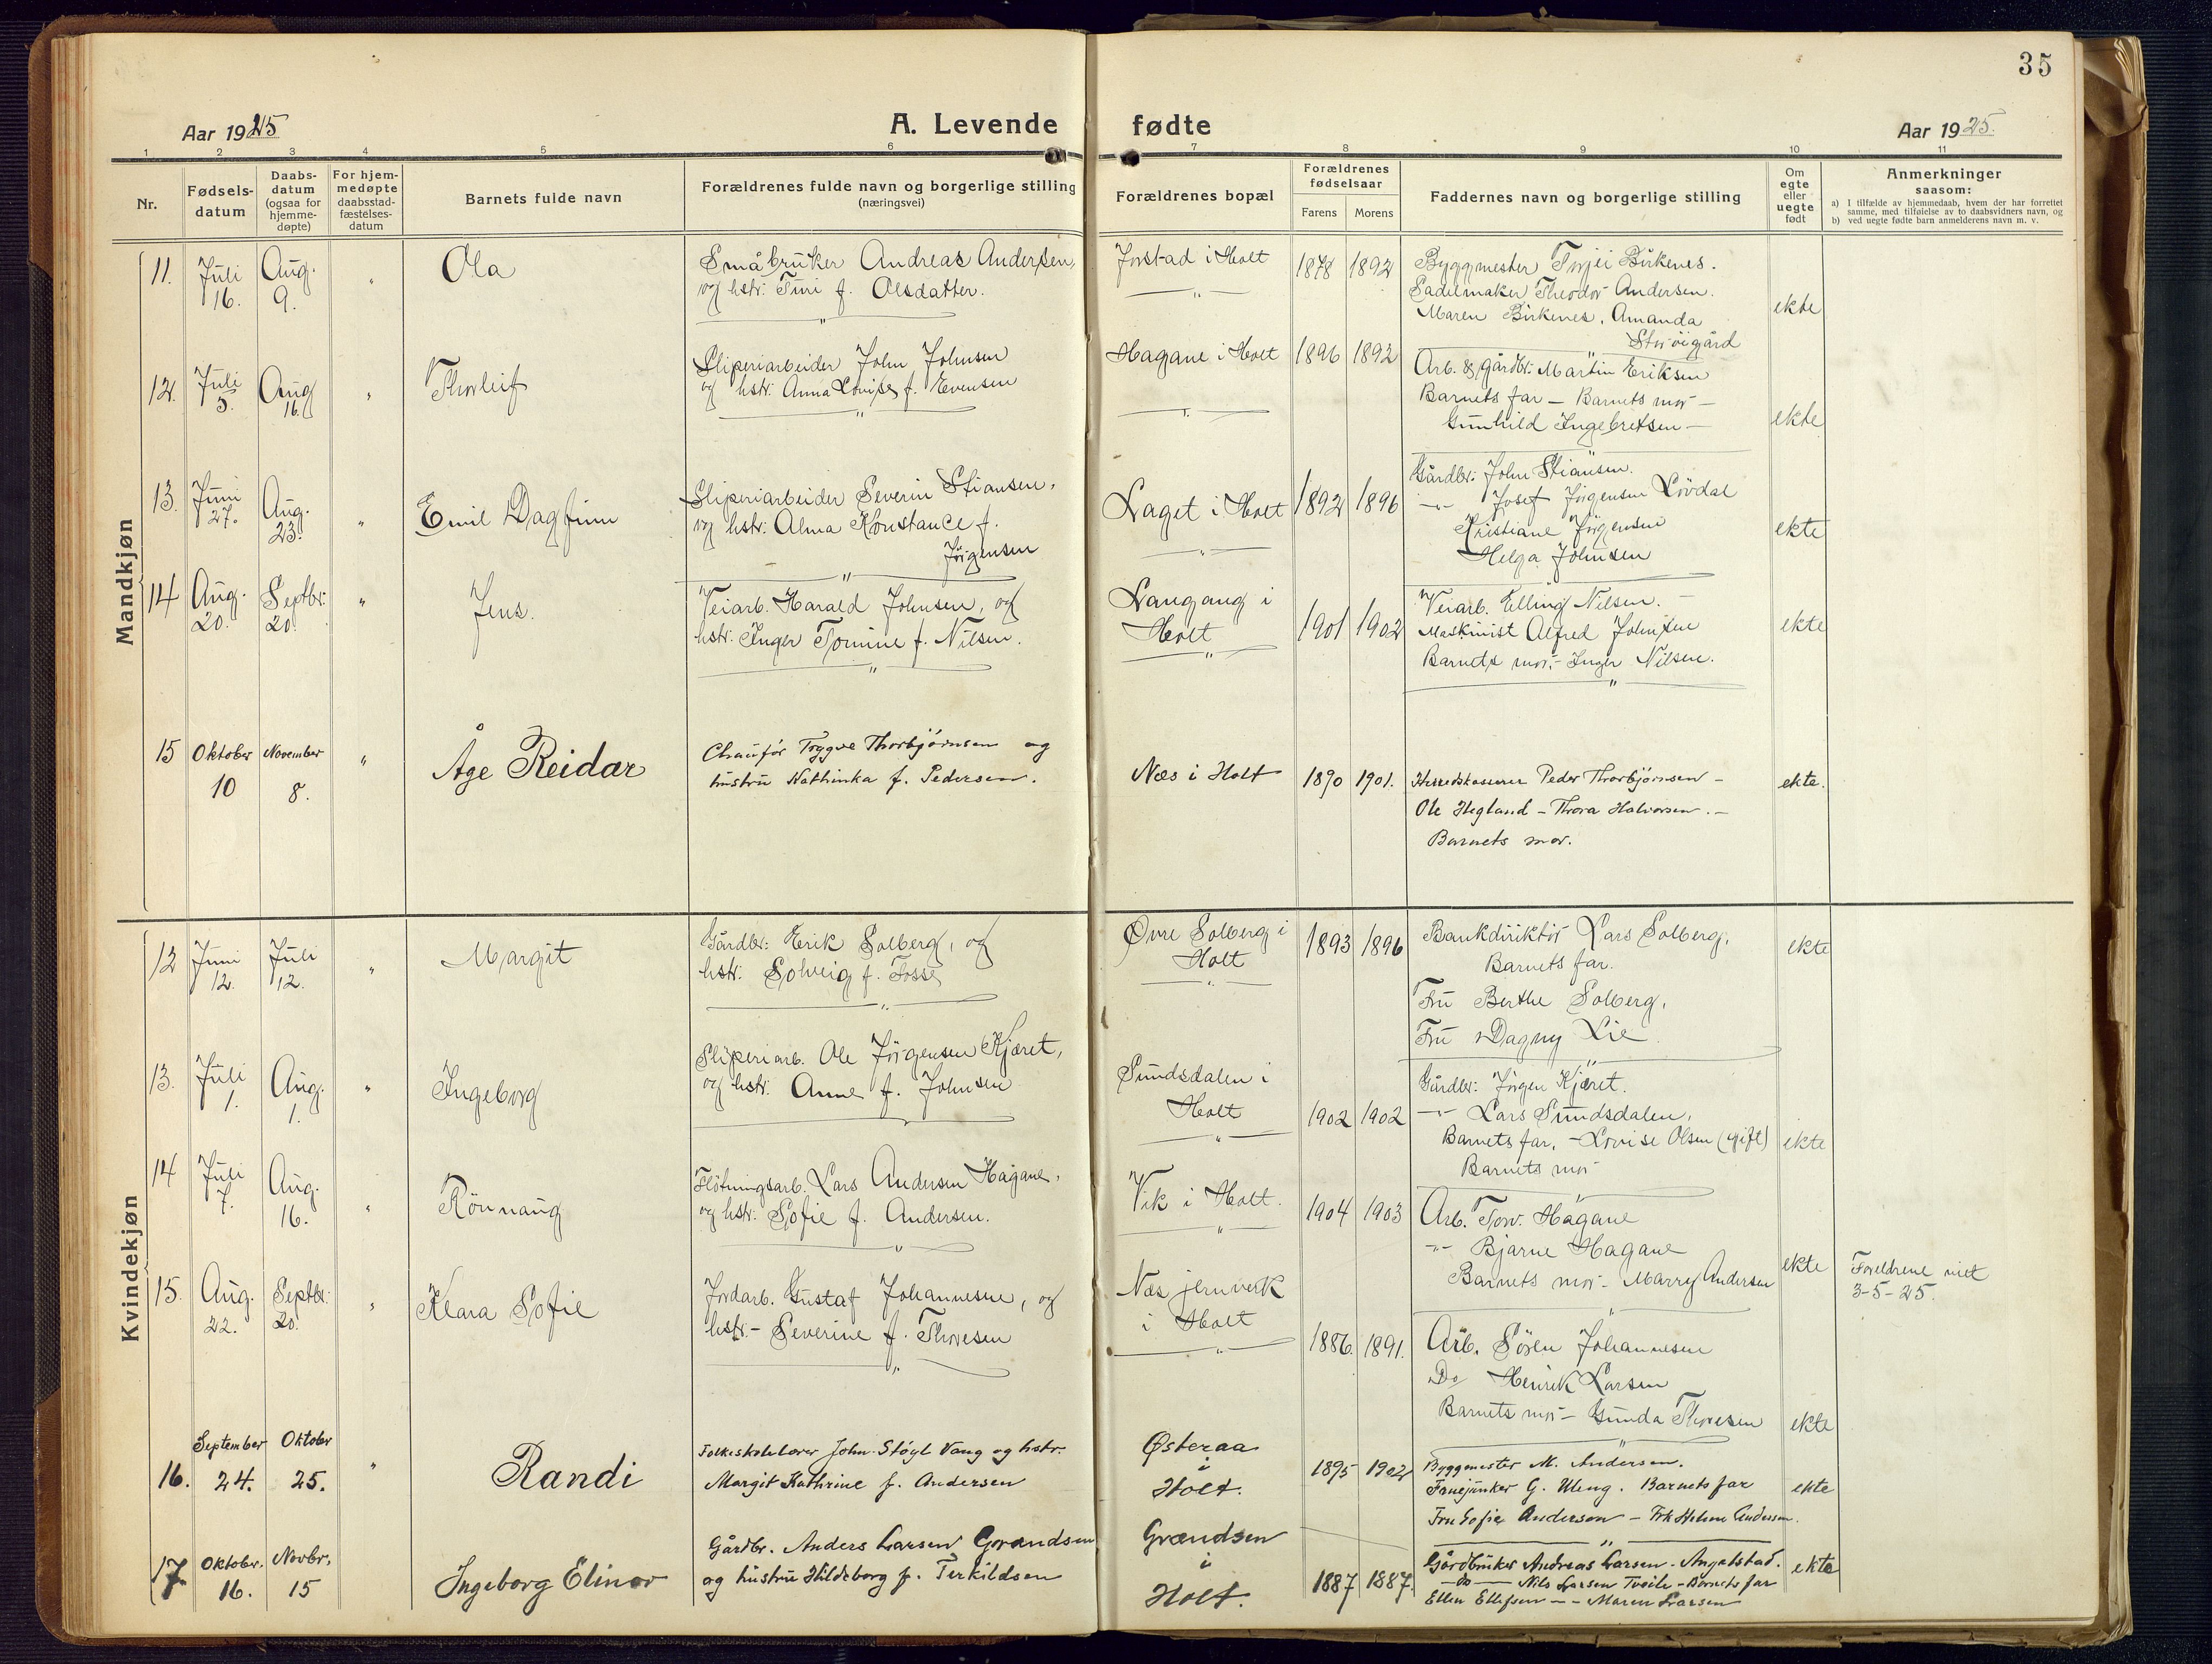 35
Aar 1925
A. Levende fødte
Aar 1925.
1 2 3 4 5 6 7 8 9 10 11
Nr.
Fødsels-
datum
Daabs-
datum
(ogsaa for
hjemme-
døpte)
For hjem-
medøpte
daabsstad-
fæstelses-
datum
Barnets fulde navn
Forældrenes fulde navn og borgerlige stilling
(næringsvei)
Forældrenes bopæl
Forældrenes
fødselsaar
Farens
Morens
Faddernes navn og borgerlige stilling
Om
egte
eller
uegte
født
Anmerkninger
saasom:
a) I tilfælde av hjemmedaab, hvem der har forrettet
samme, med tilføielse av to daabsvidners navn, og
b) ved uegte fødte barn anmelderens navn m. v.
Mandkjøn
11. Juli 16. Aug. 9. " Ola
Småbruker Andreas Andersen,
og hstr: Turi f. Olsdatter.
Jorstad i Holt
1878 1892
Byggmester Torjei Birkenes.
Sadelmaker Theodor Andersen.
Maren Birkenes. Amanda
Storøigård
ekte
12. Juli 5. Aug 16. " Thorleif
Sliperiarbeider John Johnsen
og hstr: Anna Lovise f. Evensen
Hagane i Holt
1896 1892
Arb. & gårdbr: Martin Eriksen
Barnets far – Barnets mor –
Gunhild Ingebretsen –
ekte
13. Juni 27. Aug. 23. " Emil Dagfinn
Sliperiarbeider Severin Stiansen,
og hstr: Alma Konstance f.
Jørgensen
Laget i Holt
1892 1896
Gårdbr: John Stiansen.
–"– Josef Jørgensen Lövdal
Kristiane Jørgensen
Helga Johnsen
ekte
14 Aug. 20. Septbr: 20. " Jens.
Veiarb. Harald Johnsen, og
hstr: Inger Tomine f. Nilsen.
Langang i
Holt
1901 1902
Veiarb. Elling Nilsen. –
Maskinist Alfred Johnsen
Barnets mor. – Inger Nilsen.
ekte
15 Oktober 10 November 8. " Åge Reidar
Chaufør Trygve Thorbjørnsen og
hustru Kathinka f. Pedersen.
Næs i Holt
1890 1901.
Herredskasserer Peder Thorbjørnsen –
Ole Hegland – Thora Halvorsen. –
Barnets mor.
ekte.
Kvindekjøn
12 Juni 12. Juli 12. " Margit
Gårdbr: Erik Solberg, og
hstr: Solveig f. Fosse
Øvre Solberg i
Holt
1893 1896
Bankdirektör Lars Solberg,
Barnets far.
Fru Berthe Solberg,
Fru Dagny Lie
ekte
13. Juli 1. Aug. 1. " Ingeborg
Sliperiarb. Ole Jørgensen Kjæret,
og hstr: Anne f. Johnsen
Sundsdalen i
Holt
1902 1902
Gårdbr: Jørgen Kjæret.
–"– Lars Sundsdalen,
Barnets far, – Lovise Olsen (gift)
Barnets mor
ekte
14 Juli 7. Aug. 16. " Rönnaug
Flötningsarb. Lars Andersen Hagane,
og hstr: Sofie f. Andersen.
Vik i Holt.
1904 1903
Arb. Torv. Hagane
–"– Bjarne Hagane
Barnets mor – Marry Andersen
ekte
Foreldrene viet
3-5-25.
15. Aug. 22. Septbr: 20. " Klara Sofie
Jordarb. Gustaf Johannesen, og
hstr. – Severine f. Thoresen
Næs jernverk
i Holt
1886. 1891.
Arb. Sören Johannesen
Do Henrik Larsen
Barnets mor – Gunda Thoresen
ekte
16. September 24. Oktober 25. " Randi
Folkeskolelærer John Støyl Vang og hstr.
Margit Kathrine f. Andersen
Østeraa
i
Holt.
1895 1902
Byggmester M. Andersen.
Fanejunker G. Uleng. Barnets far
Fru Sofie Andersen – Frk Helene Andersen.
ekte
17 Oktober. 16. Novbr, 15 Ingeborg Elinor
Gårdbr. Anders Larsen Grændsen
og hustru Hildeborg f. Terkildsen
Grændsen
i
Holt.
1887 1887.
Gårdbruker Andreas Larsen. Angelstad.
– do – Nils Larsen Tveite – Barnets far
Ellen Ellefsen – – Maren Larsen
ekte